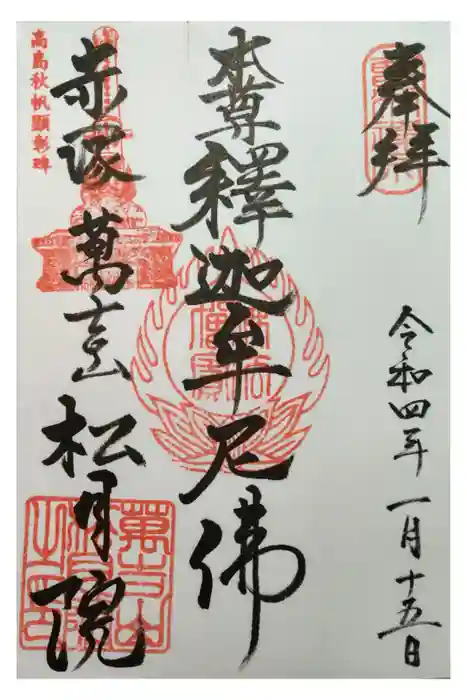 奉拝
令和四年一月十五日
本尊釋迦牟尼佛
赤塚萬吉山松月院
高島秋帆顕彰碑